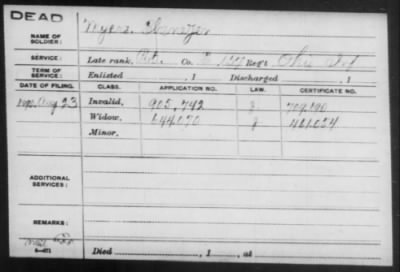 DEAD
NAME OF SOLDIER: Myers, Ebenezer
SERVICE: Late rank, Co. Reg't Ohio Inf
TERM OF SERVICE: Enlisted , 1 Discharged , 1
DATE OF FILING. CLASS. APPLICATION NO. LAW. CERTIFICATE NO.
Aug 23 Invalid, 905,742
Widow, 644,070 8
Minor,
ADDITIONAL SERVICES:
REMARKS:
Died , 1 , at